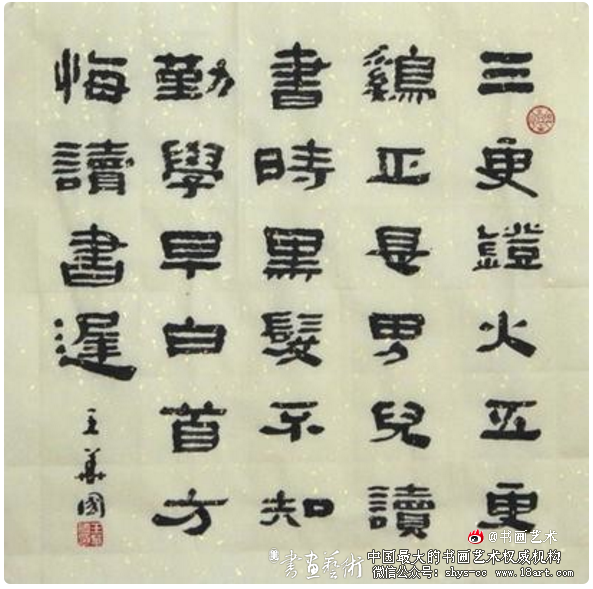 三更鐙火五更
鷄正是男兒讀
書時黑髮不知
勤學早白首方
悔讀書遲
王華國
@书画艺术
書画藝術
中国最大的书画艺术权威机构
微信公众号: shys-cc www.18art.com